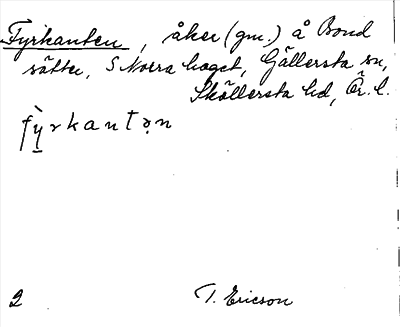 Fyrkanten, åker (gm.) å Bond
sätter, S Norra haget, Gällersta sn,
Sköllersta hd, Ör. l.
fỳ̠rkantən
2 T. Ericson